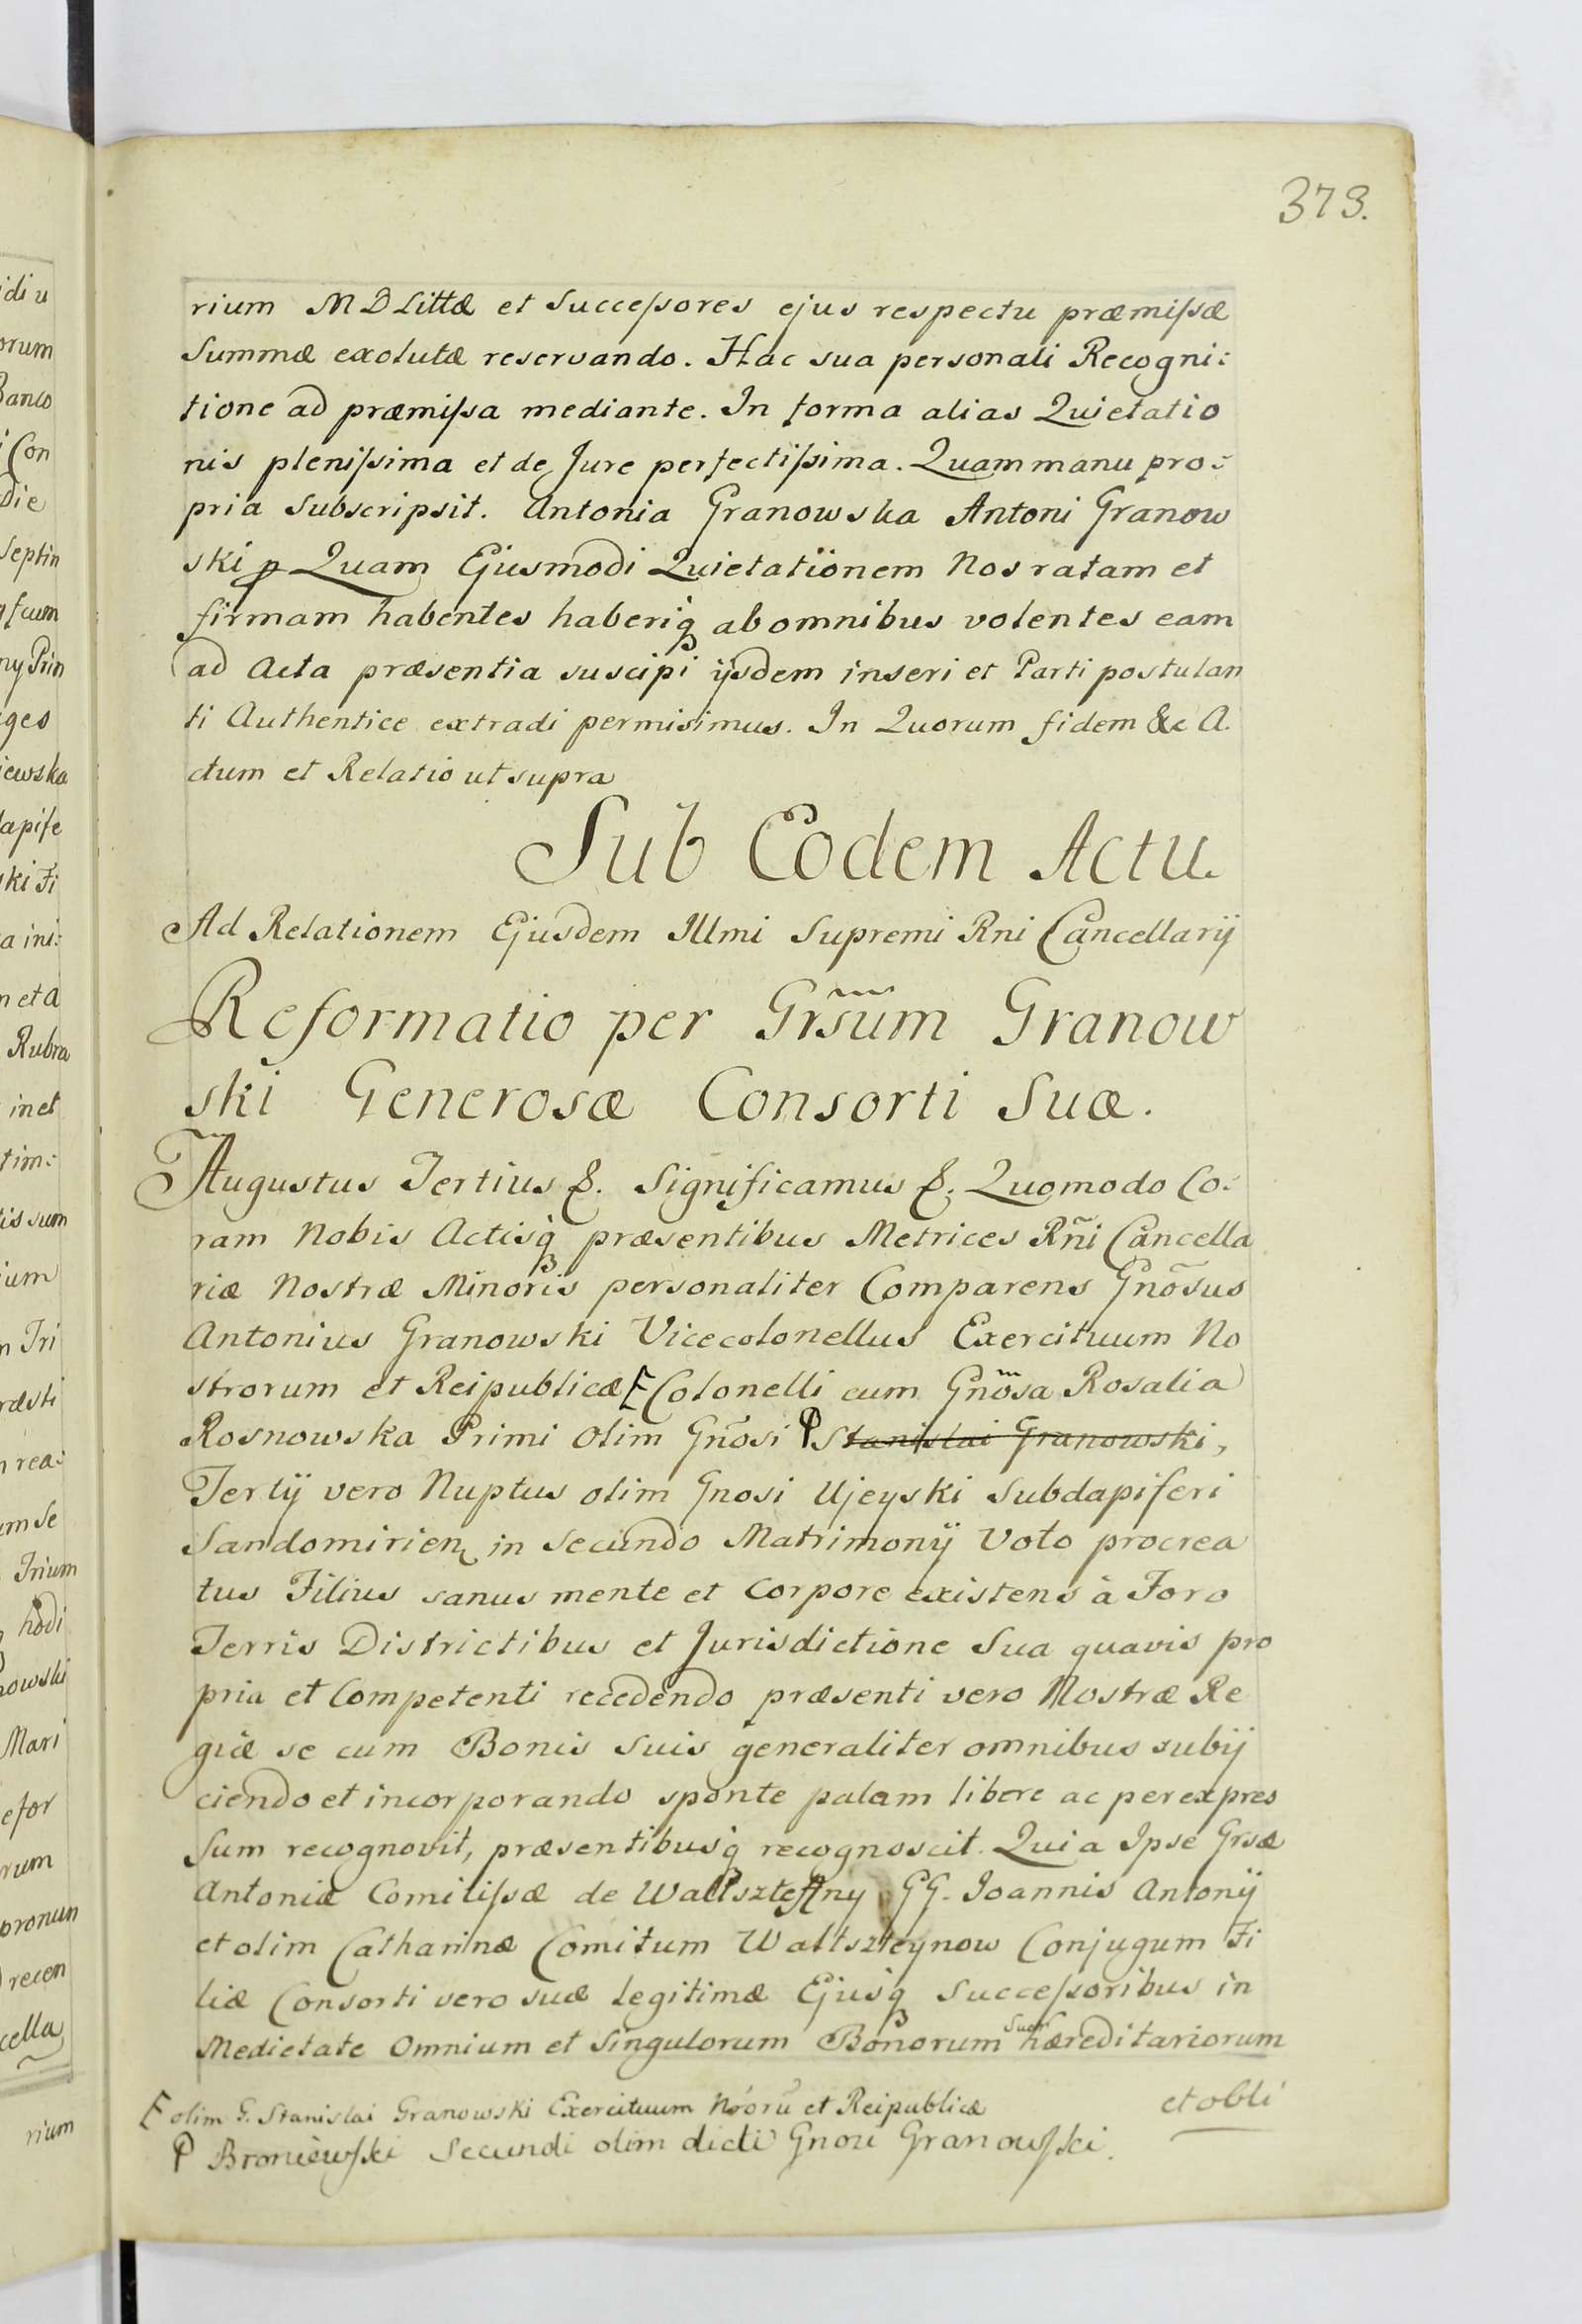 373.
rium M D Littæ et Succeſsores ejus respectu præmiſsæ
Summæ exolutæ reservando. Hac sua personali Recogni:
tione ad præmiſsa mediante. In forma alias Quietatio
nis pleniſsima et de Jure perfectiſsima. Quam manu pro:
pria Subscripsit. Antonia Granowska Antoni Granow
ski p Quam Ejusmodi Quietationem Nos ratam et
firmam habentes haberiq́ ab omnibus volentes eam
ad Acta præsentia suscipi ijsdem inseri et Parti postulan
ti Authentice extradi permisimus. In Quorum fidem &c A.
ctum et Relatio ut supra
Sub Eodem Actu.
Ad Relationem Ejusdem Illmi Supremi Rni Cancellarij
Reformatio per Grsum Granow
ski Generosæ Consorti Suæ.
Augustus Tertius &. Significamus &. Quomodo Co:
ram Nobis Actisq́ præsentibus Metrices Rñi Cancella
riæ Nostræ Minoris personaliter Comparens Gnõsus
Antonius Granowski Vicecolonellus Exercituum No
strorum et Reipublicæ E Colonelli cum Gnosa Rosalia
Rosnowska Primi Olim Gnõsi ₱ Stanislai Granowski,
Tertij vero Nuptus olim Gnosi Ujeyski Subdapiferi
Sandomirien in Secundo Matrimonij Voto procrea
tus Filius sanus mente et Corpore existens à Foro
Terris Districtibus et Jurisdictione Sua quavis pro
pria et Competenti recedendo præsenti vero Nostræ Re
giæ se cum Bonis Suis generaliter omnibus subij
ciendo et incorporando sponte palam libere ac per expres
Sum recognovit, præsentibusq́ recognoscit. Quia Ipse Grsæ
Antoniæ Comitiſsæ de Waltszteyny GG. Joannis Antonij
et olim Catharinæ Comitum Waltszteynow Conjugum Fi
liæ Consorti vero suæ legitimæ Ejusq́ Succeſsoribus in
Medietate Omnium et Singulorum Bonorum Suor hæreditariorum
et obli
E olim G. Stanislai Granowski Exercituum Nóorũ et Reipublicæ
₱ Broniewſki Secundi olim dicti Gnosi Granowſki.